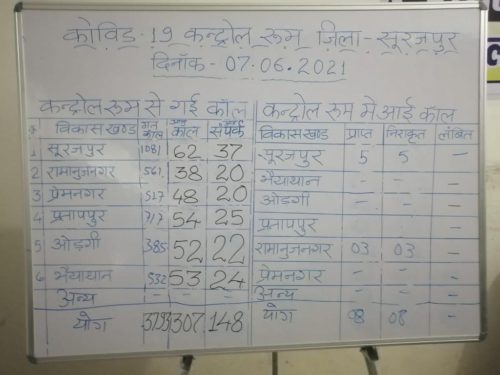 कोविड 19 कन्ट्रोल रूम जिला - सूरजपुर
दिनॉक - 07.06.2021
कन्ट्रोल रूम से गई कॉल
कन्ट्रोल रूम मे आई कॉल
विकासखण्ड गत कॉल कॉल संपर्क
1 सूरजपुर 1081 62 37
2 रामानुजनगर 561 38 20
3 प्रेमनगर 517 48 20
4 प्रतापपुर 717 54 25
5 ओड़गी 385 52 22
6 भैयाथान 532 53 24
अन्य - - -
योग 3793 307 148
विकासखण्ड प्राप्त निराकृत लंबित
सूरजपुर 5 5 -
भैयाथान - - -
ओड़गी - - -
प्रतापपुर - - -
रामानुजनगर 03 03 -
प्रेमनगर - - -
अन्य - - -
योग 08 08 -